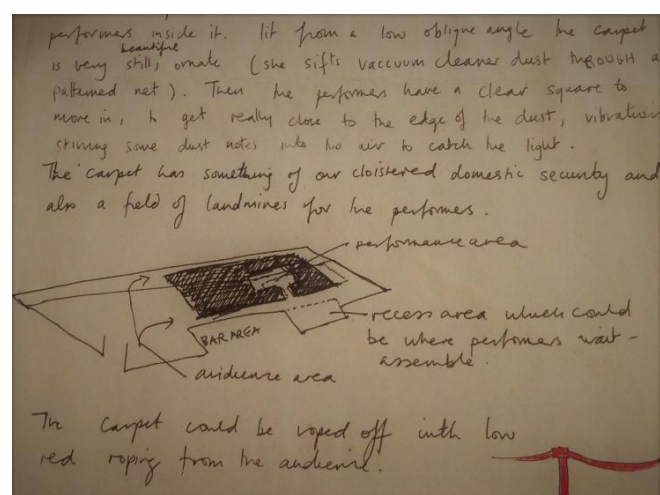 performers inside it. lit from a low oblique angle the carpet
beautiful
is very still, ornate (she sifts vaccuum cleaner dust through a
patterned net). Then the performers have a clear square to
move in, to get really close to the edge of the dust, vibrations
stirring some dust notes into the air to catch the light.
The carpet has something of our cloistered domestic security and
also a field of landmines for the performers.
performance area
recess area which could
be where performers wait -
assemble.
BAR AREA
audience area
The carpet could be roped off with low
red roping from the audience.